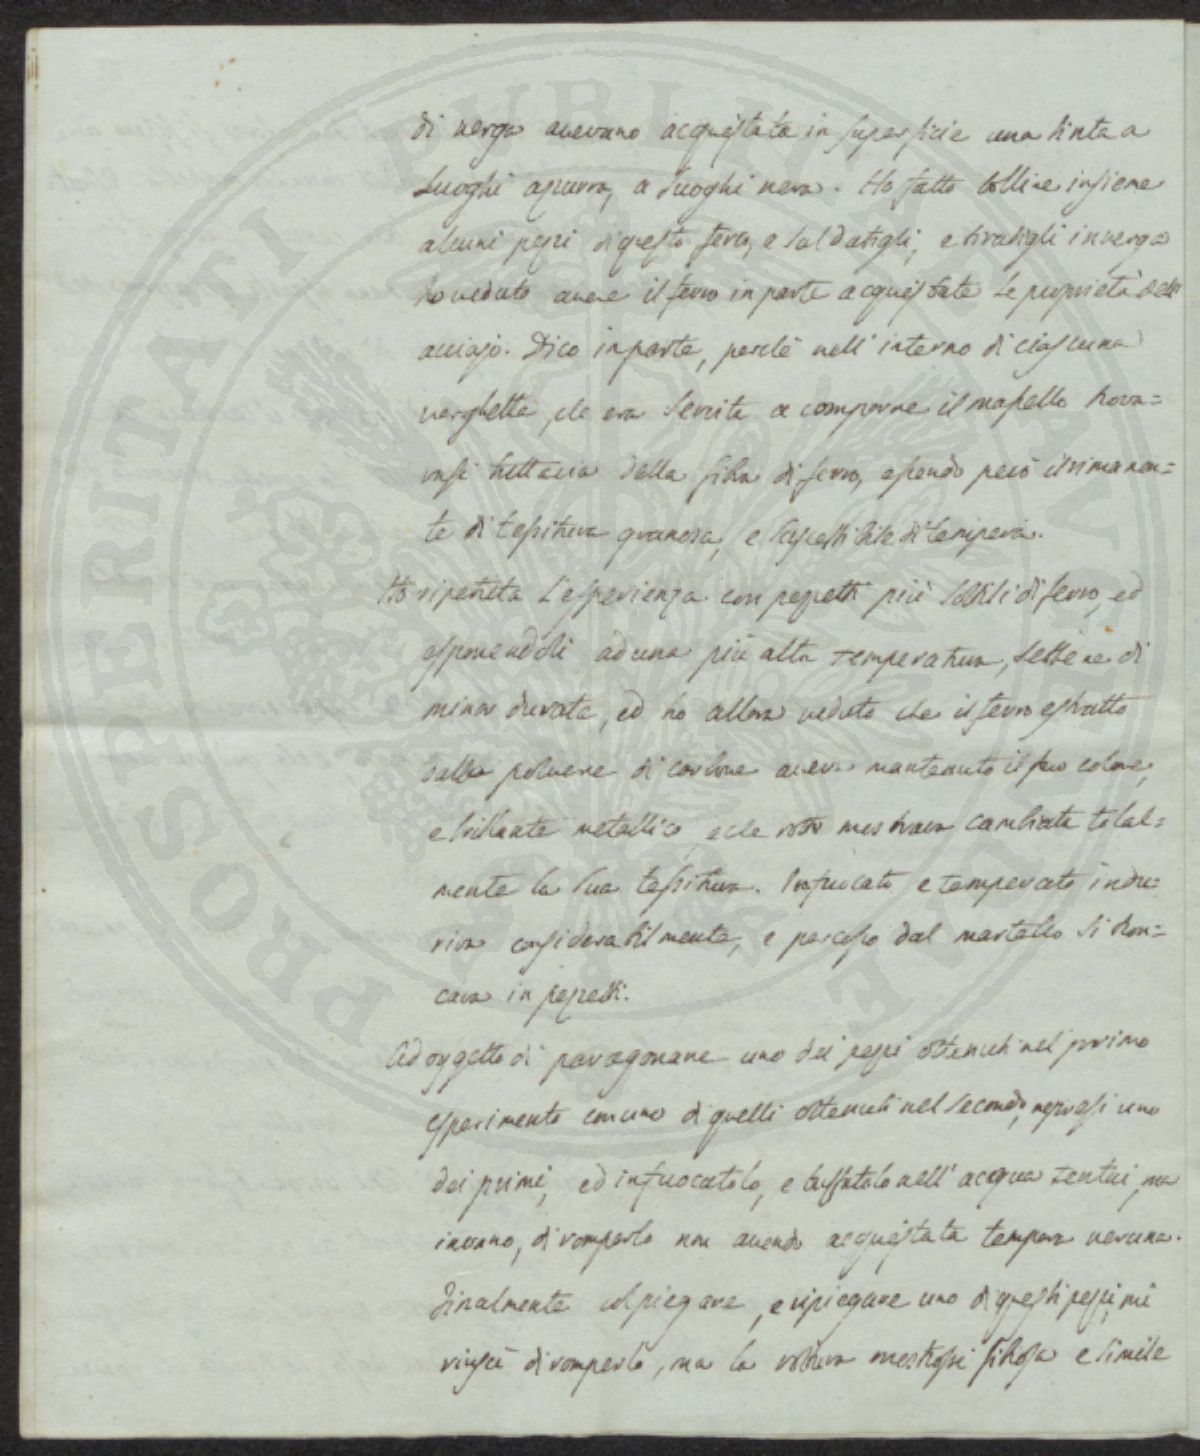 di verga avevano acquistata in superficie una tinta a
luoghi azzurra, a luoghi nera. Ho fatto bollire insieme
alcuni pezzi di questo ferro, e saldatigli, e tiratigli in verga
ho veduto avere il ferro in parte acquistate le proprietà dell'
acciajo. Dico in parte, perchè nell'interno di ciascuna
verghetta, che era servita a comporre il masello trova=
vasi tuttavia della fibra di ferro, essendo però il rimanen=
te di tessitura granosa, e suscettibile di tempera.
Ho ripetuta l'esperienza con pezzetti più sottili di ferro, ed
esponendoli ad una più alta temperatura, sebbene di
minor durata, ed ho allora veduto che il ferro estratto
dalla polvere di carbone aveva mantenuto il suo colore,
e brillante metallico, e che rotto mostrava cambiata total=
mente la sua tessitura. Infuocato e temperato indu=
riva considerabilmente, e percosso dal martello si tron=
cava in pezzetti.
Ad oggetto di paragonare uno dei pezzi ottenuti nel primo
esperimento con uno di quelli ottenuti nel secondo, ripresi uno
dei primi, ed infuocatolo, e tuffatolo nell'acqua tentai, ma
invano, di romperlo non avendo acquistata tempera veruna.
Finalmente col piegare, e ripiegare uno di questi pezzi, mi
riuscì di romperlo, ma la rottura mostrossi fibrosa e simile
PROSPERITATI PUBLICAE